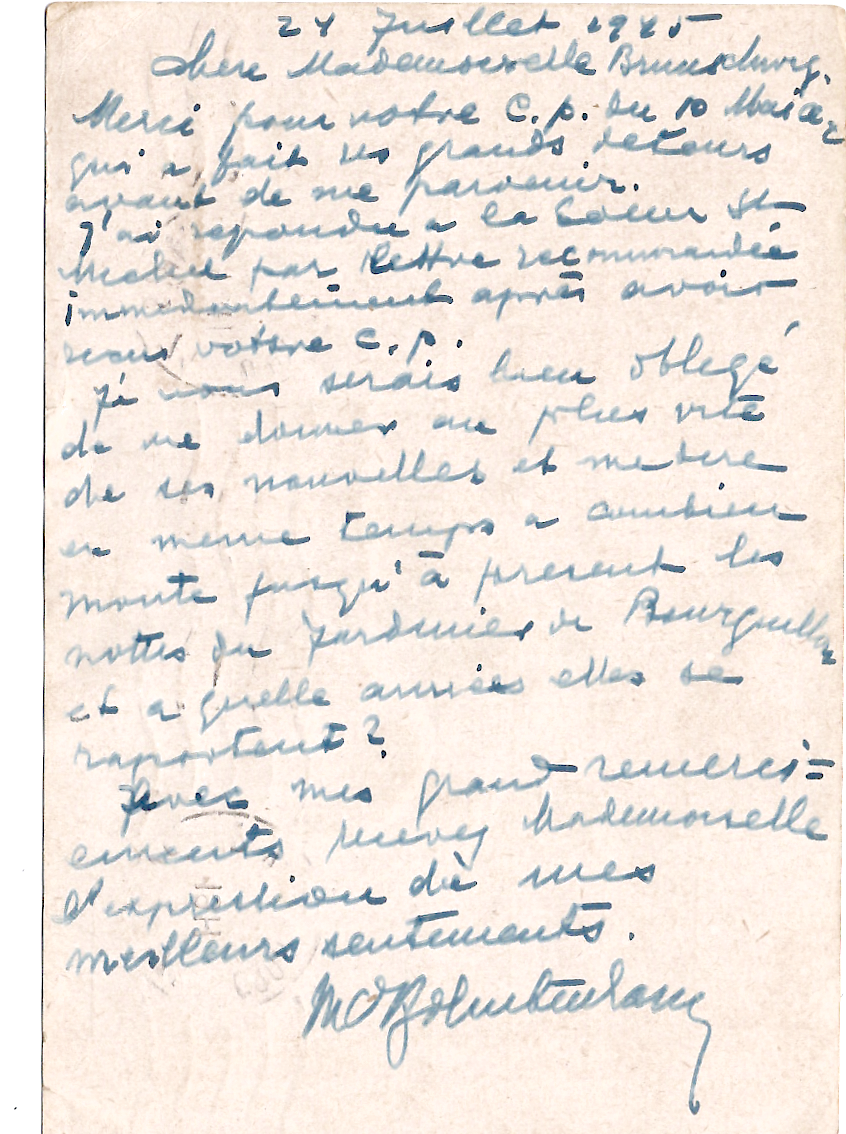 24 Juillet 1945
chere Mademoiselle Brunschwig,
Merci pour votre C.p. du 10 Mai a.
qui a fait des grands detours
avant de me parvenir.
J'ai repondu a la Soeur St
par lettre recommandée
immediatement après avoir
recu votre C.p.
Je vous serais bien oblegé
de me donner au plus vite
de ses nouvelles et me dire
en meme temps a combien
monte jusqu'à present les
nottes du Jardinier de Bourguillon
et a quelle annees elles se
raportent?
Avec mes grand remerci=
ements recevez Mademoiselle
l'expression de mes
meilleurs sentements.